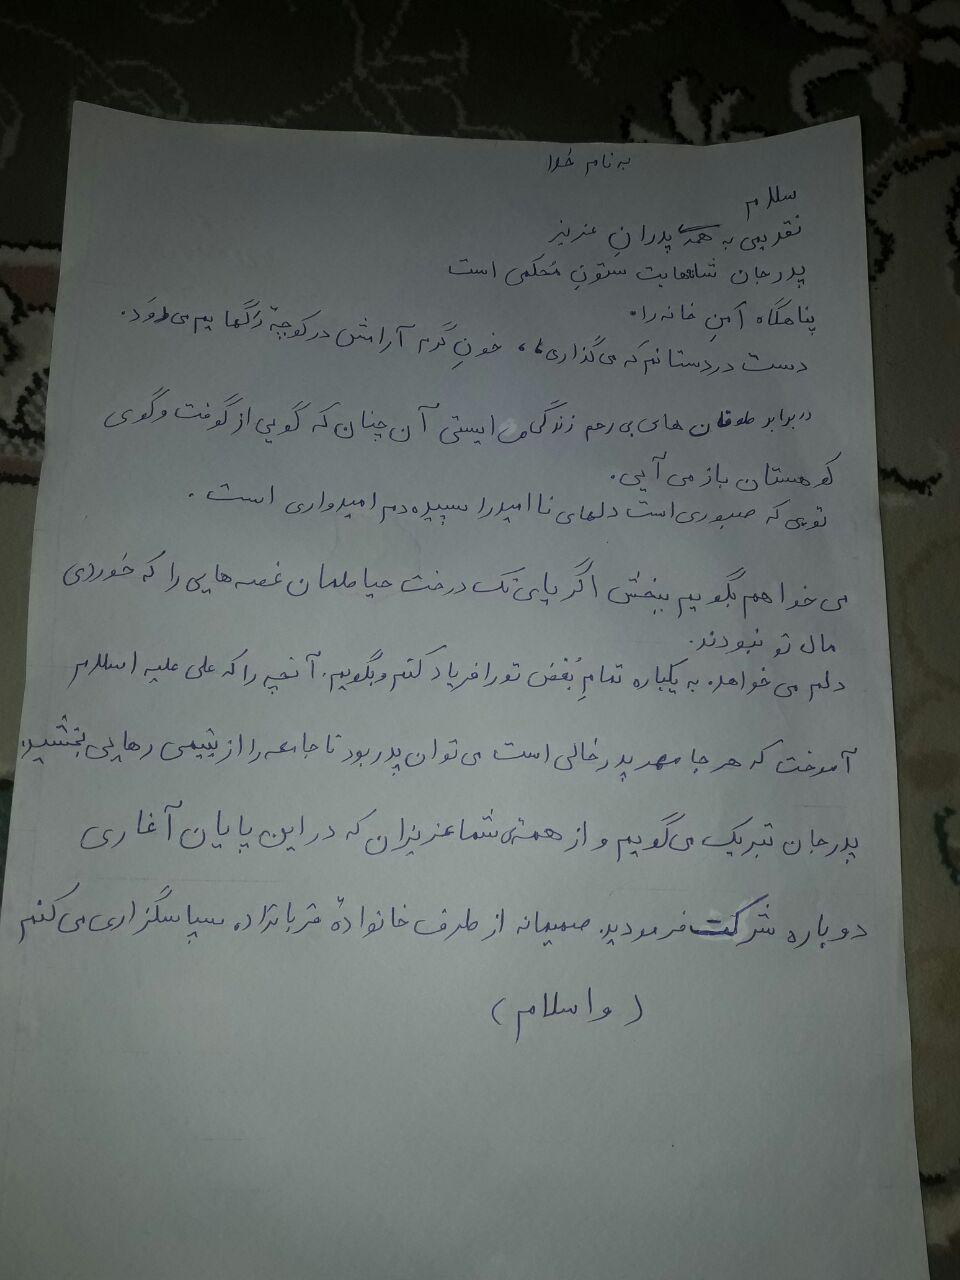 به نام خدا
سلام
تقدیمی به همه پدرانِ عزیز
پدرجان شانه‌هایت ستونِ مُحکمی است
پناهگاه اَمنِ خانه را.
دست در دستانم که می‌گذاری، خونِ گرمِ آرامش در کوچهٔ رگهایم می‌دوَد.
در برابر طوفان های بی رحم زندگی می ایستی آن چنان که گویی از گوفت و گوی
کوهستان باز می آیی.
تویی که صبوری است دلهای نا امید را سپیده دم امیدواری است.
می خواهم بگویم ببخش اگر پای تک درخت حیاطمان غصه هایی را که خوردی
مال تو نبودند.
دلم می خواهد. به یکباره تمامِ بُغضِ تو را فریاد کنم و بگویم. آنچه را که علی علیه اسلام
آموخت که هر جا مهر پدر خالی است می توان پدر بود تا جامعه را از یتیمی رهایی بخشید.
پدرجان تبریک می‌گویم و از همه‌ی شما عزیزان که در این پایان آغاری
دوباره شرکت فرمودید. صمیمانه از طرف خانوادهٔ سپاسگزاری می کنم
( و اسلام )